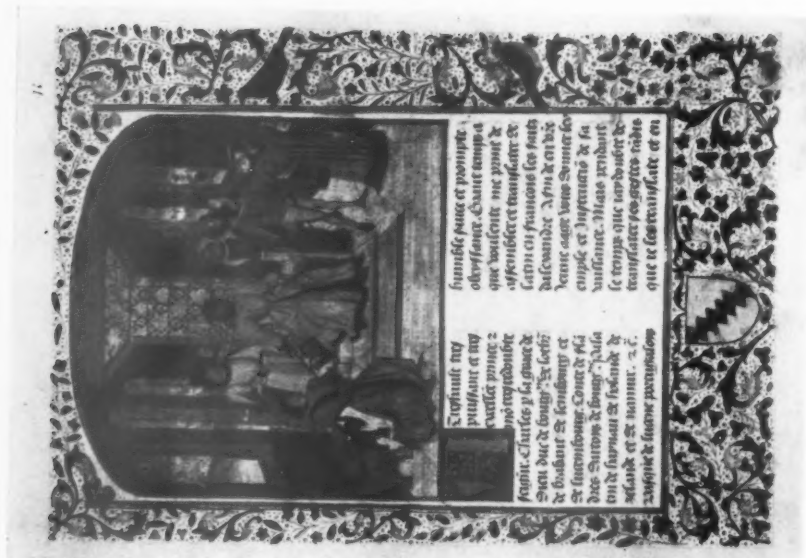 Treshault tres
puissant et tres
excellēt prince z
mō tresredoubte
seignr. Charles p la grace de
Dieu duc de bourgne De
de brabant De lembourg et
De luxembourg. Conte de flā
dres Dartois de bourgne
de haynau De holande de
zelande et De namur. zc̄.
Vasque de lucene portugalois
humble salut et prompte
obeissance. Avant temps a
que voulente me print de
assembler et translater De
latin en francois les faits
dalexandre. Afin de en vr̄e
jeune aage vous donner lex
emple et linstructiō de sa
vaillance. Mais pendant
le temps que
translater ses gestes
que je les translate et en